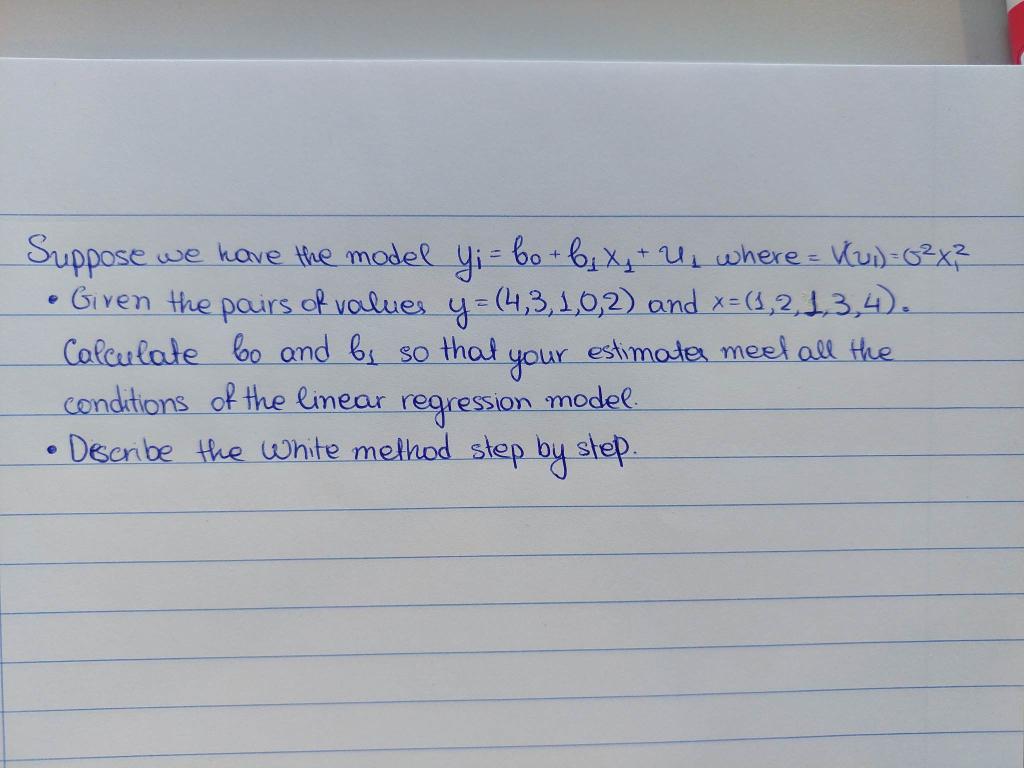 Suppose we have the model yi = b0 + b1 x1 + u1 where = V(ui) = σ²xi²
• Given the pairs of values y = (4,3,1,0,2) and x = (1,2,1,3,4).
Calculate b0 and b1 so that your estimates meet all the
conditions of the linear regression model.
• Describe the White method step by step.